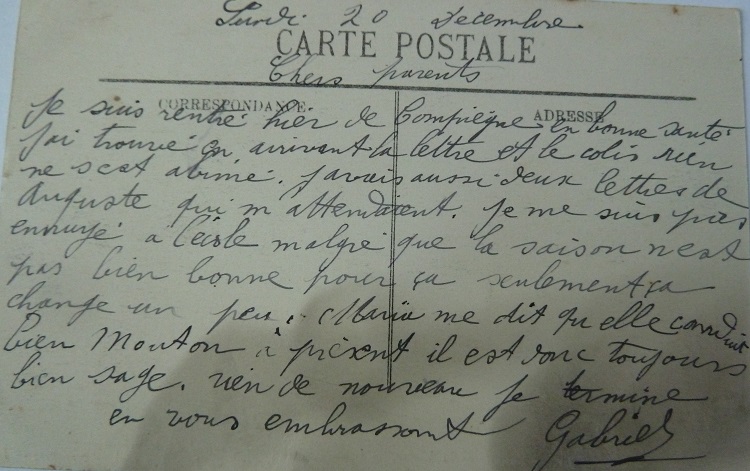 Lundi 20 Decembre
CARTE POSTALE
Chers parents
CORRESPONDANCE
ADRESSE
Je suis rentré hier de Compiègne en bonne santé
j'ai trouvé en arrivant la lettre et le colis rien
ne s'est abimé. J'avais aussi deux lettres de
Auguste qui m'attendaient. Je me suis pas
ennuyé a l'école malgré que la saison n'est
pas bien bonne pour ça seulement ça
change un peu. Maria me dit qu'elle conduit
bien Mouton à présent il est donc toujours
bien sage. rien de nouveau je termine
en vous embrassant Gabriel